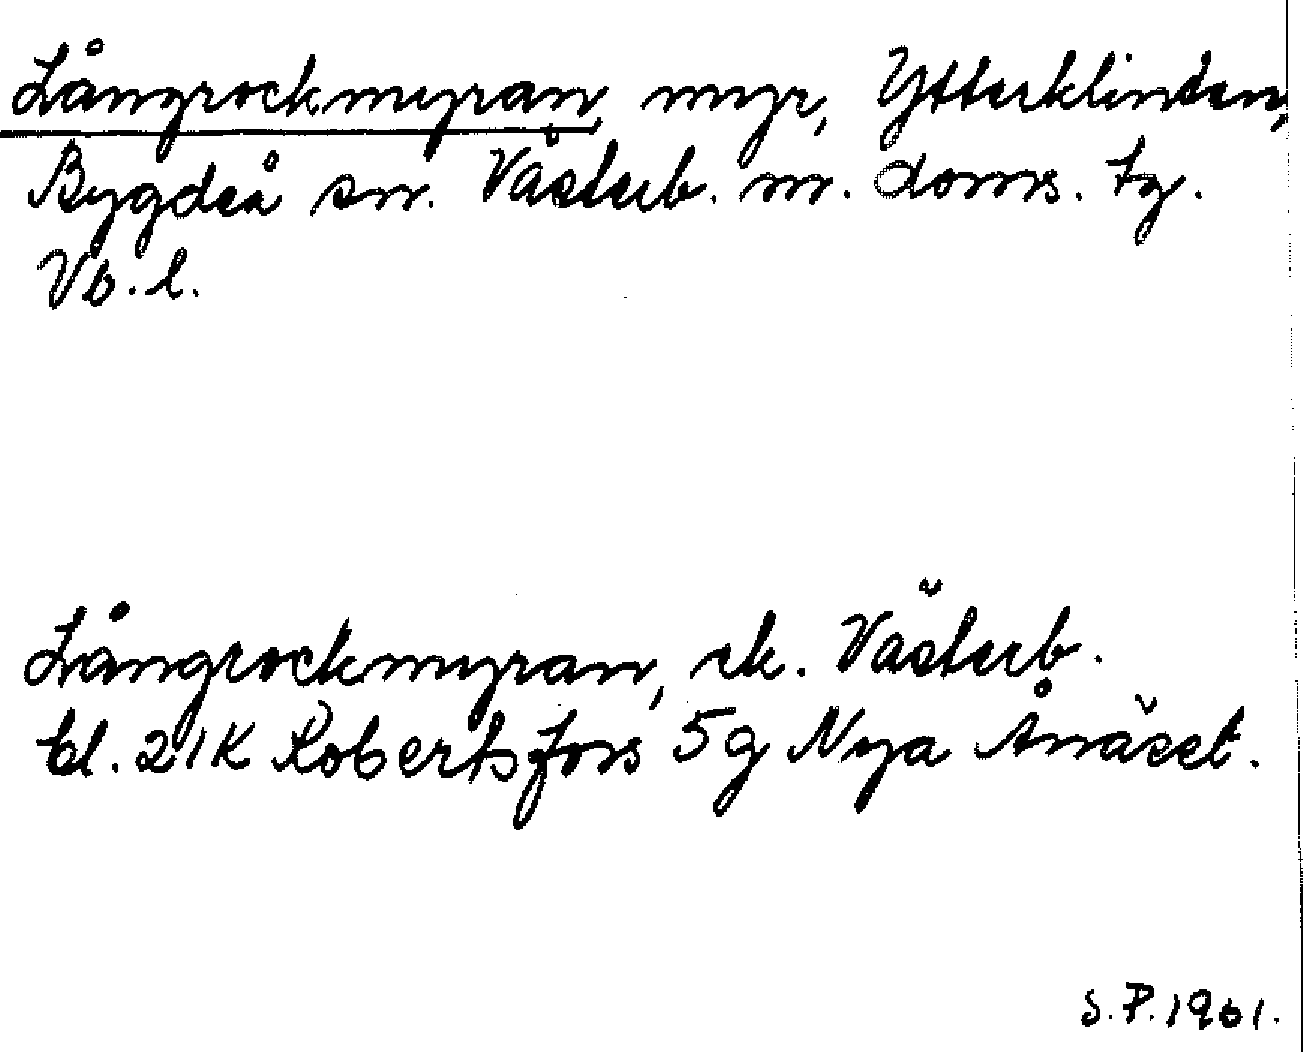 Långrockmyran, myr, Ytterklinten,
Bygdeå sn. Västerb. n. doms. tg.
Vb. l.
Långrockmyran, ek. Västerb.
bl. 21K Robertsfors 5g Nya Ånäset.
S.P. 1961.